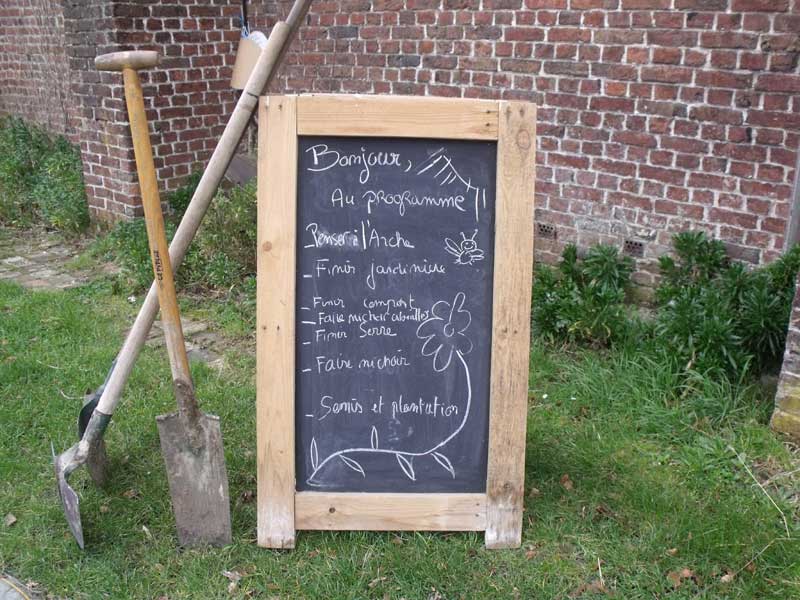 Bonjour,
Au programme
Arche
- Finir jardinière
Finir compost
- Faire nichoir abeilles
- Finir Serre
- Faire nichoir
- Semis et plantation